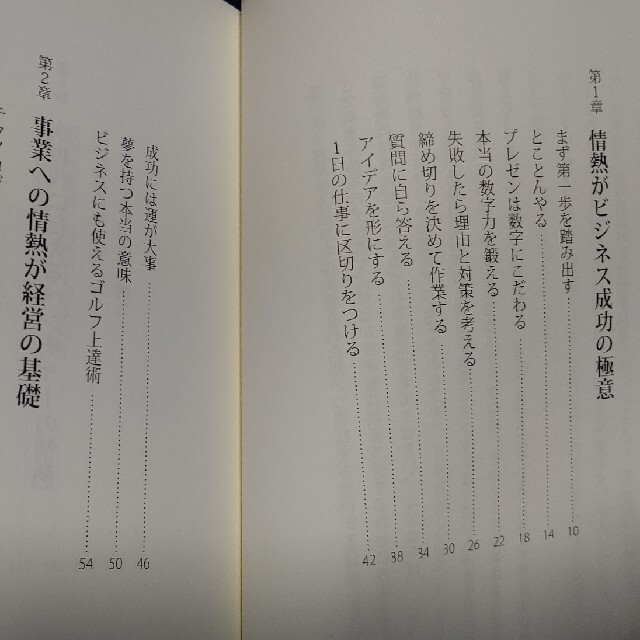 第1章 情熱がビジネス成功の極意
まず第一歩を踏み出す 10
とことんやる 14
プレゼンは数字にこだわる 18
本当の数字力を鍛える 22
失敗したら理由と対策を考える 26
締め切りを決めて作業する 30
質問に自ら答える 34
アイデアを形にする 38
1日の仕事に区切りをつける 42
成功には運が大事 46
夢を持つ本当の意味 50
ビジネスにも使えるゴルフ上達術 54
第2章 事業への情熱が経営の基礎